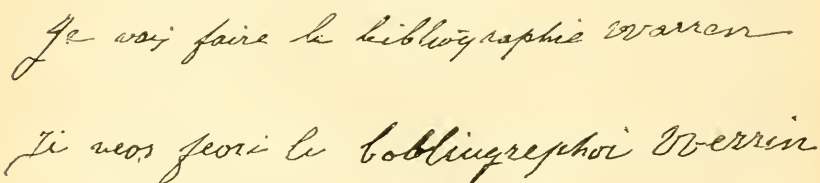 Je vais faire la bibliographie Warren
Ji veos feori le bobliugrephoi Werrin